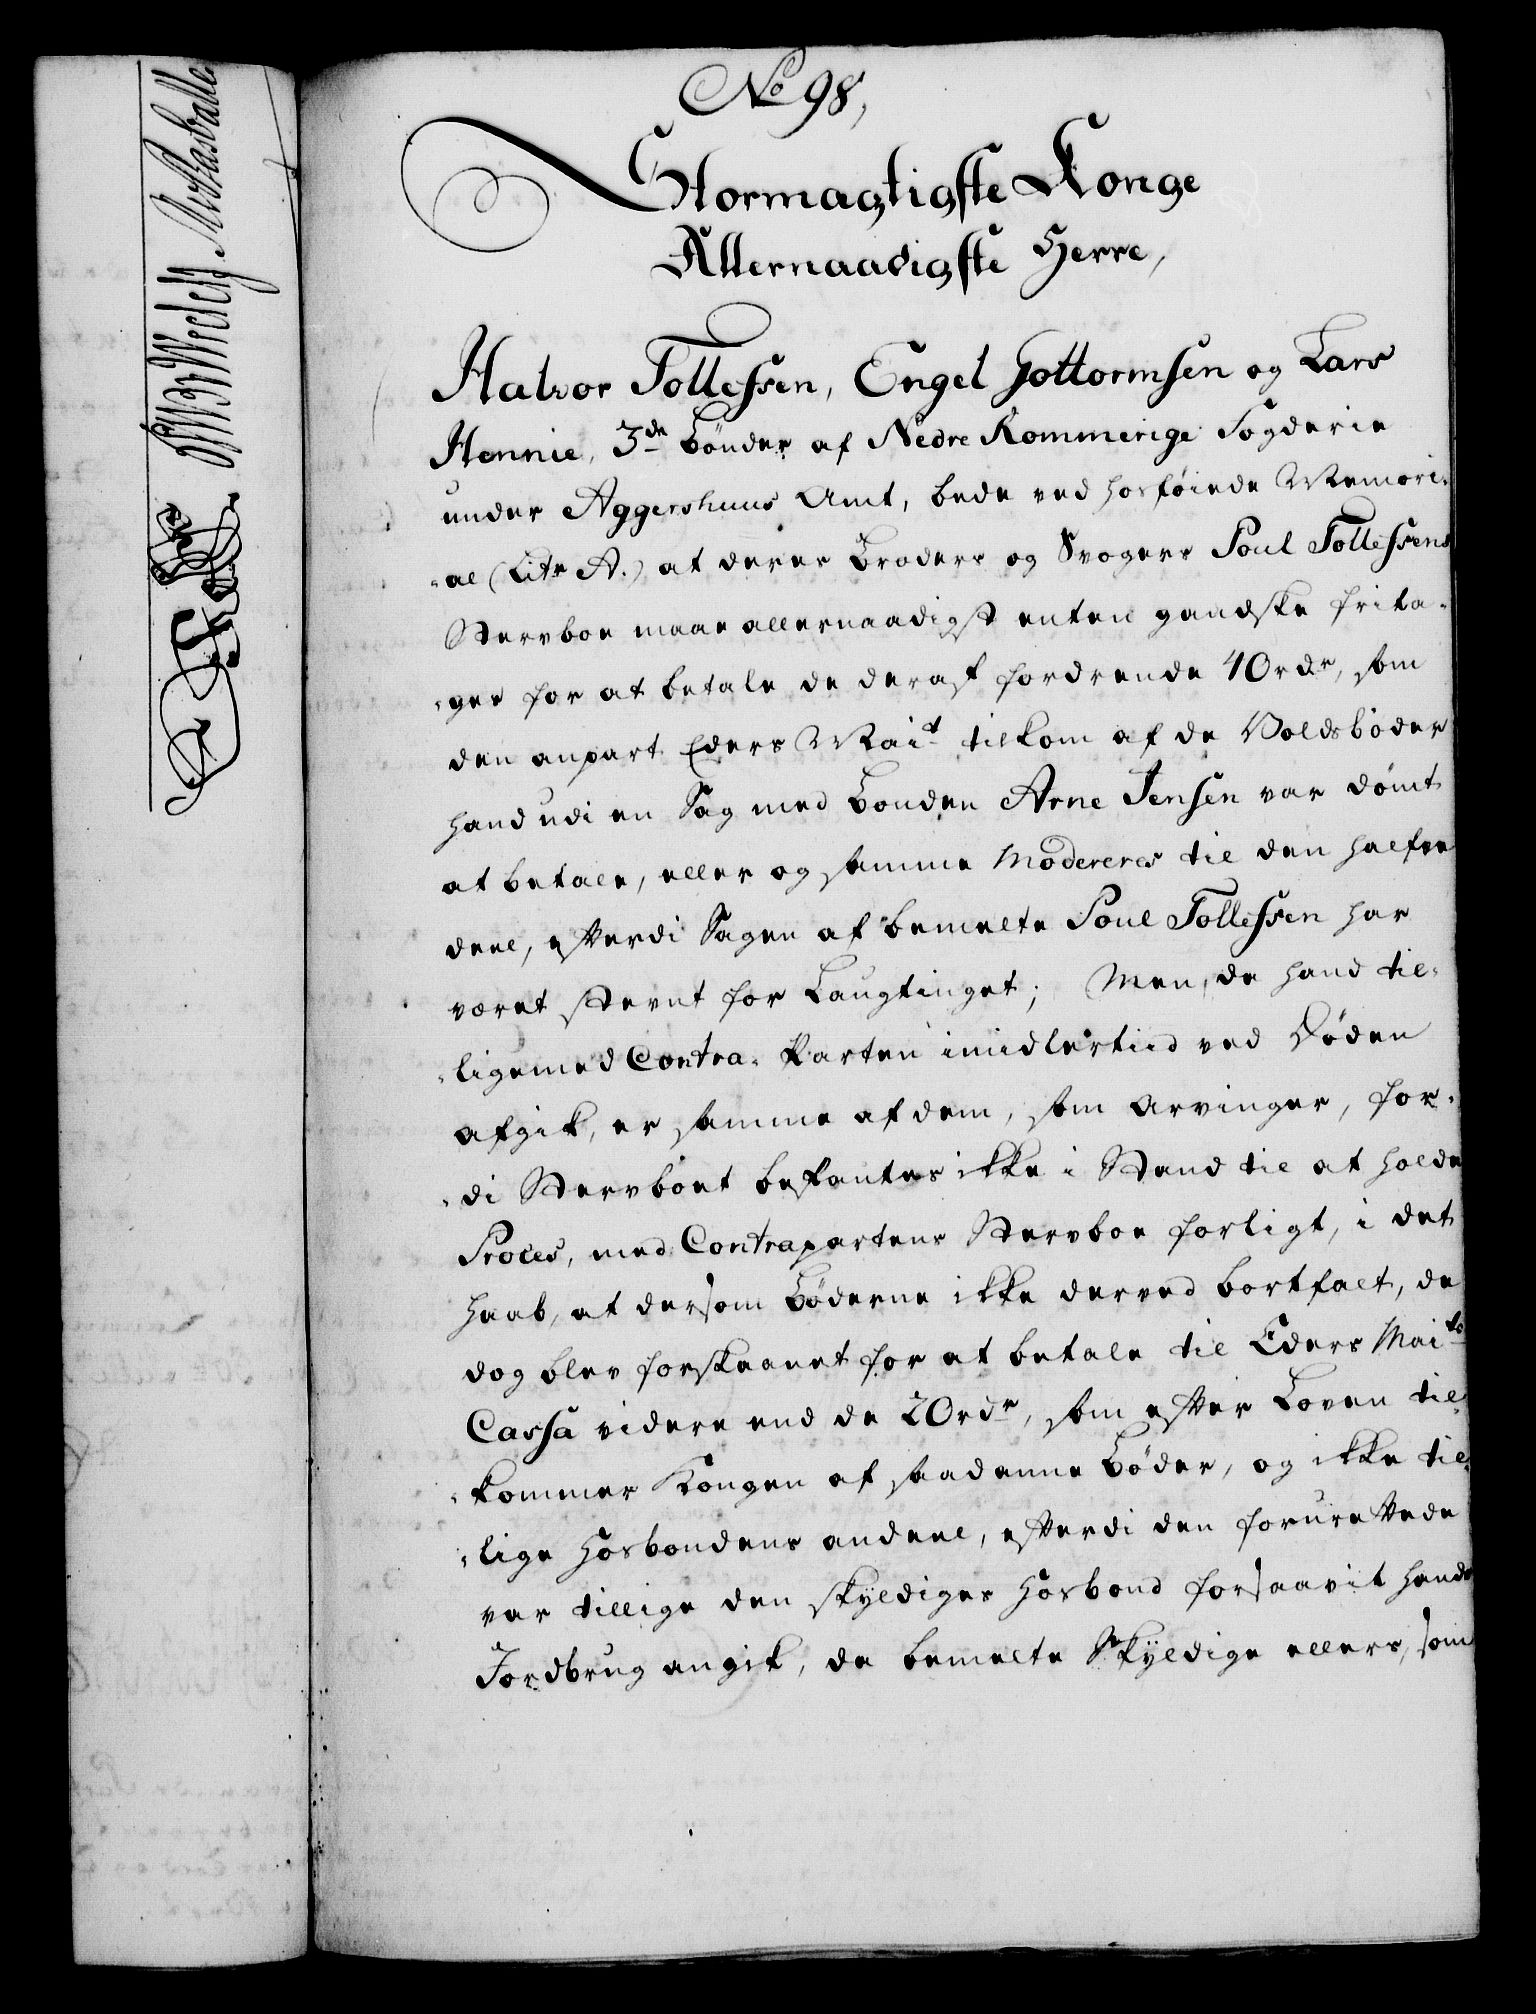 No 98,
Stormagtigste Konge
Allernaadigste Herre,
Halvor Tollefsen, Engel Gottormsen og Lars
Hennie, 3de Bønder af Nedre Rommerige Fogderie
under Aggershuus Amt, bede ved hosføiede Memori-
-al (Litr A.) at deres Broders og Svogers Poul Tollefsens
Stervboe maae allernaadigst enten gandske frita-
-ges for at betale de deraf fordrende 40 rdr, som
den anpart Eders Mait tilkom af de Voldsbøder
hand udi en Sag med Bonden Arne Jensen var dømt
at betale, eller og samme Modereres til den halfve
deel, efterdi Sagen af bemelte Poul Tollefsen har
været stevnt for Laugtinget; Men, da hand til-
-ligemed Contra-Parten imidlertiid ved Døden
afgik, er samme af dem, som Arvinger, for-
-di Stervboet befantes ikke i Stand til at holde
Proces, med Contrapartens Stervboe forligt, i det
Haab, at dersom Bøderne ikke derved bortfalt, de
dog blev forskaanet for at betale til Eders Maits
Cassa videre end de 20 rdr, som efter Loven til-
-kommer Kongen af saadanne Bøder, og ikke til-
-lige Hosbondens andeel, efterdi den forurettede
var tillige den skyldiges Hosbond forsaavit hands
Jordbrug angik, da bemelte Skyldige ellers, som